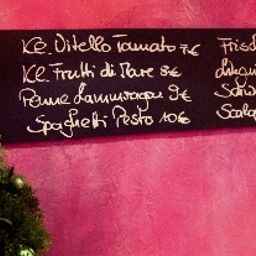 Kl. Vitello Tonnato 7€
Kl. Frutti di Mare 8€
Penne Lammragou 9€
Spaghetti Pesto 10€
Frisc
Schw